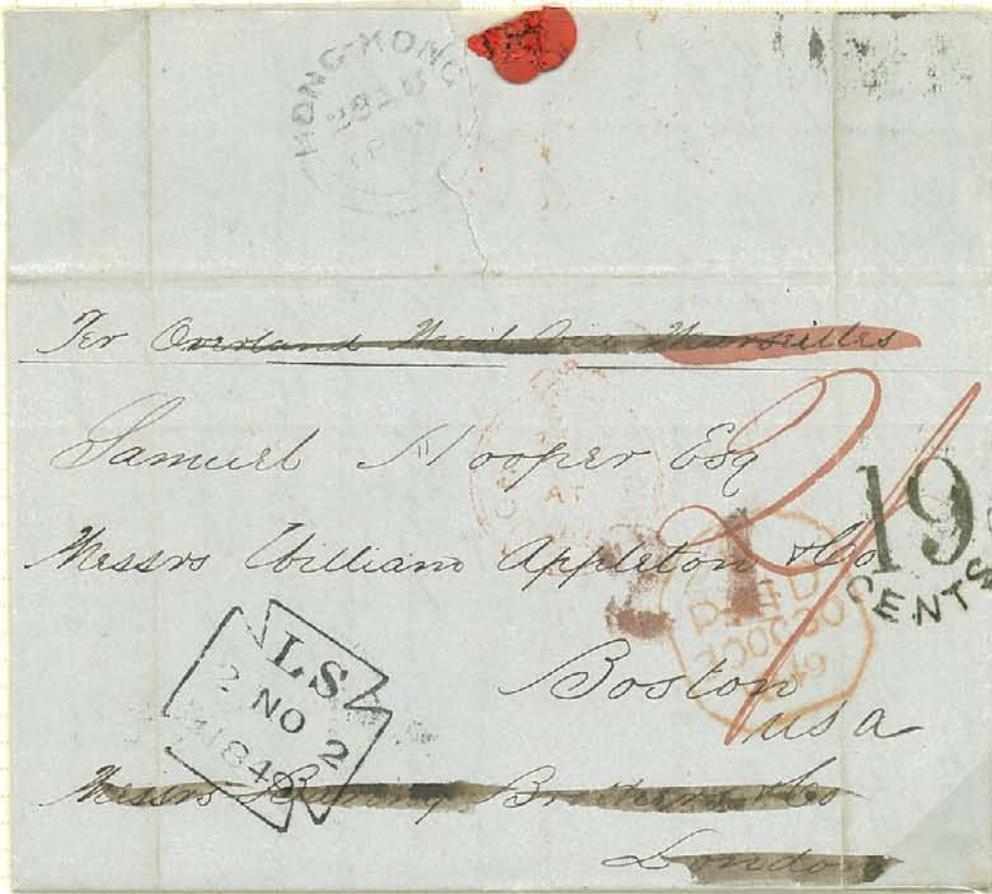 HONG-KONG
Per Overland Mail via Marseilles
Samuel Hooper Esq
AT
Messrs William Appleton & Co
19
CENTS
PAID
Boston
USA
LS
2 NO 2
1849
Messrs Baring Brothers & Co
London